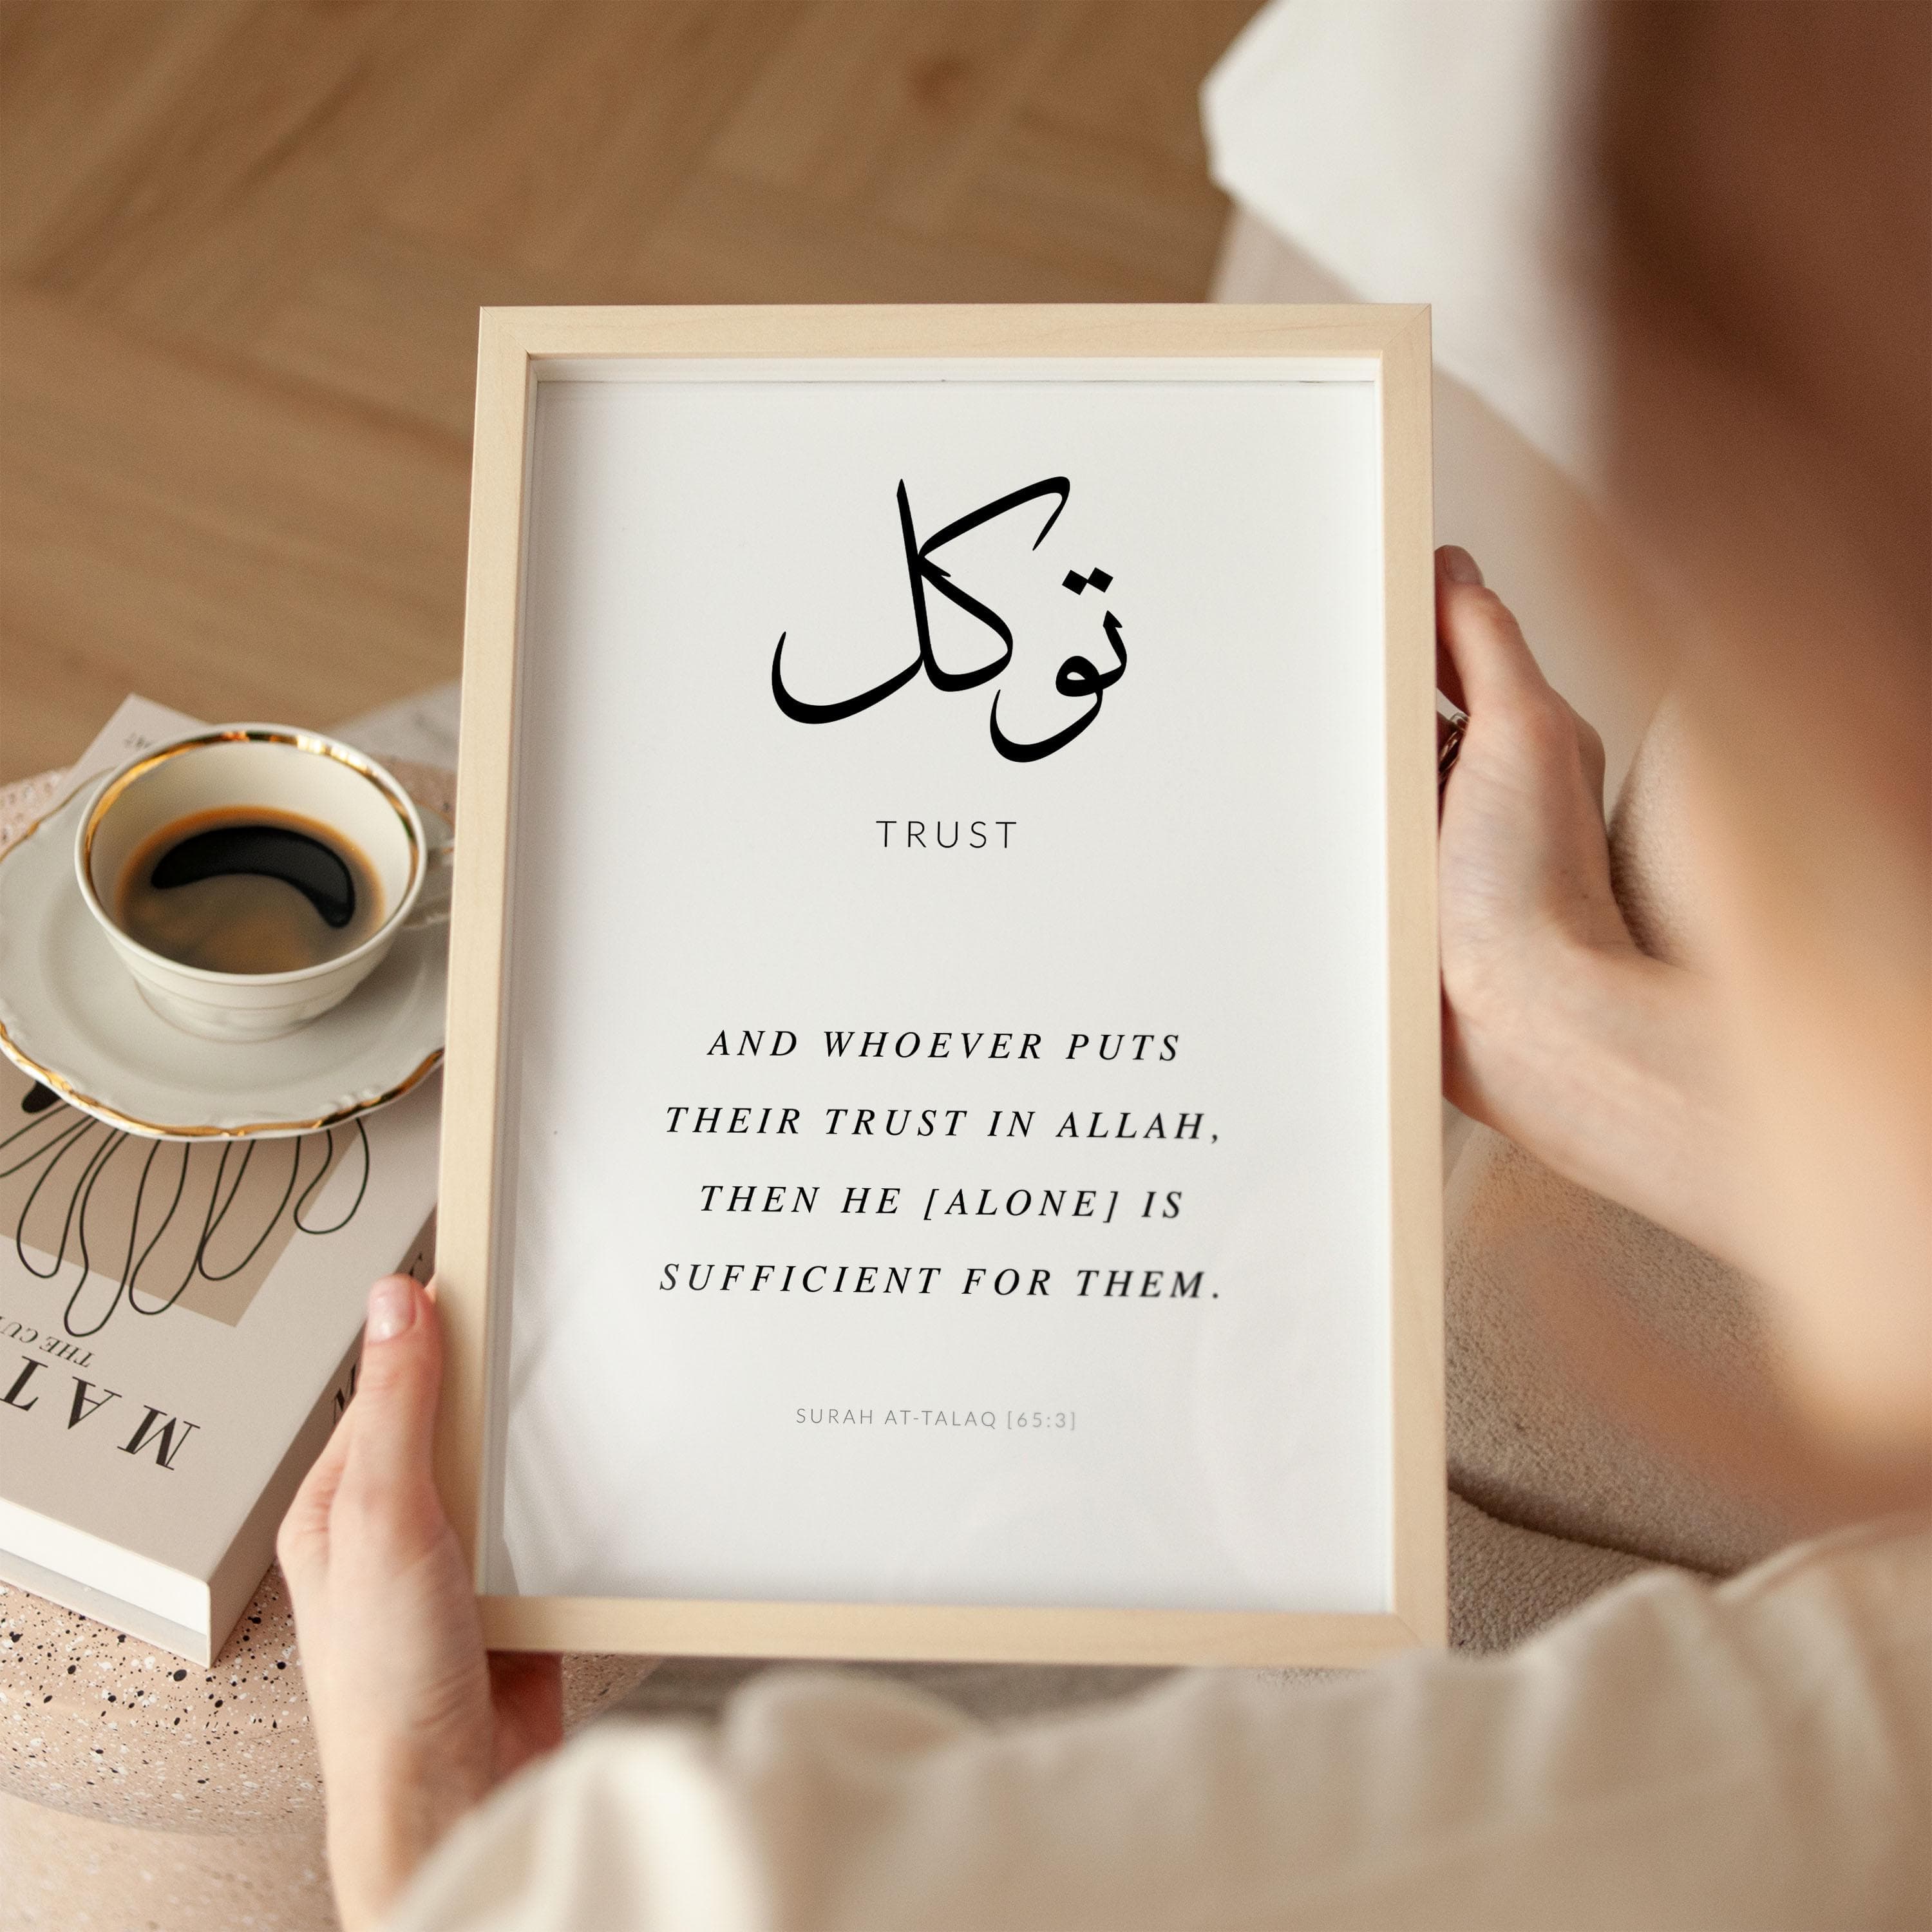 توكل
TRUST
AND WHOEVER PUTS
THEIR TRUST IN ALLAH,
THEN HE [ALONE] IS
SUFFICIENT FOR THEM.
SURAH AT-TALAQ [65:3]
THE